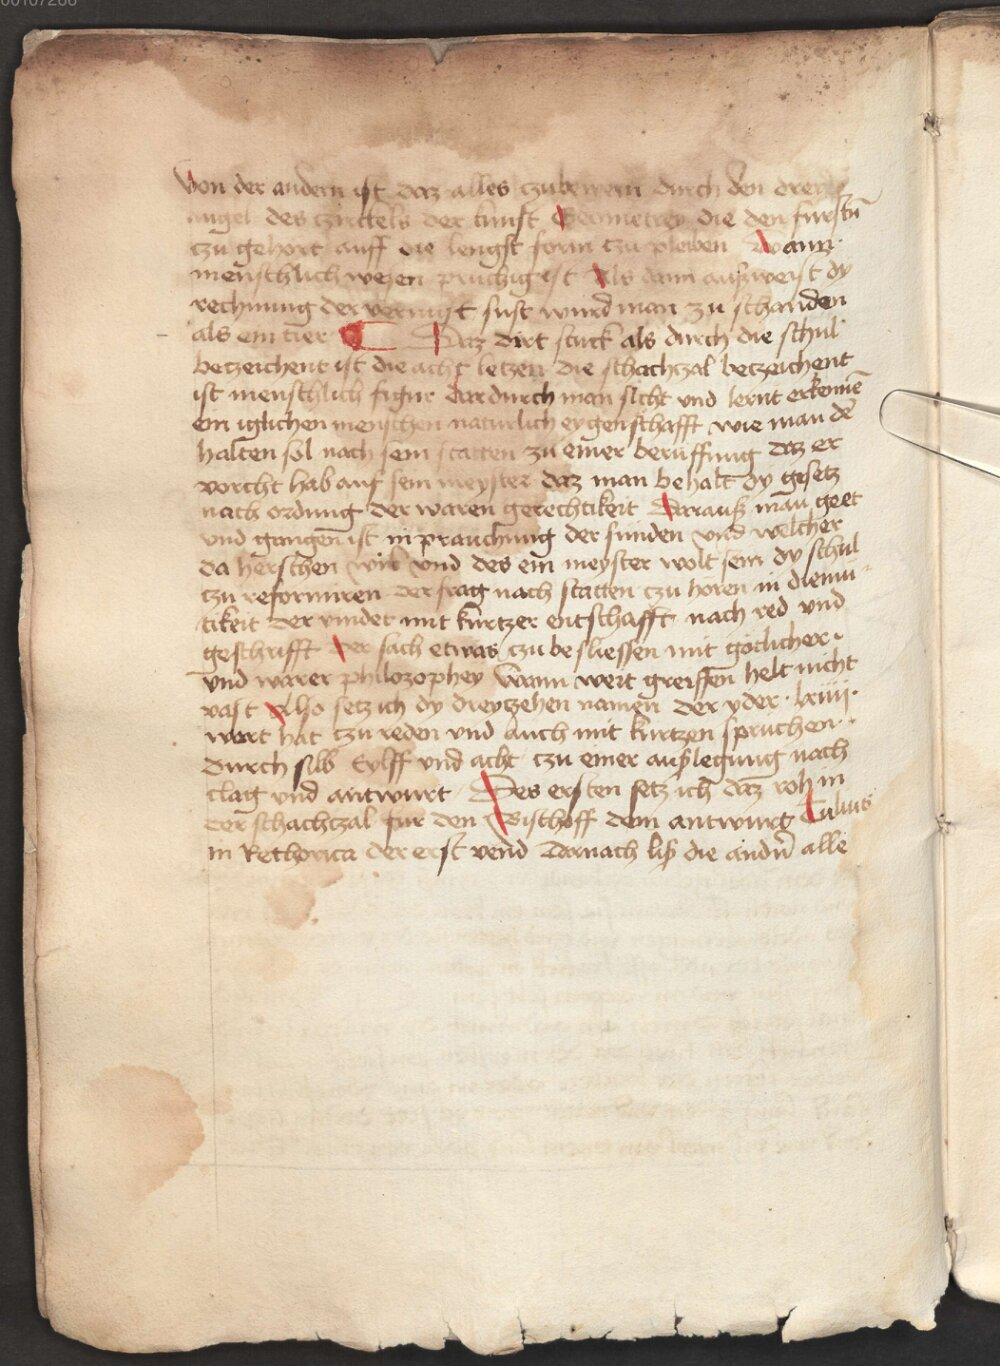 von der andern ist daz alles czubewern durch den
angel des czirckels der kunst Geometrey die den furstn̄
czu gehort auff die lengst form czu pleiben Wann
menschlich wesen pruchig ist Als dann außweist dy
rechnung der vernuft sust wurd man zu schanden
als ein tier Daz dirt stuck als durch die schul
betzeichent ist die acht letzen die schachzal betzeichent
ist menschlich figur dardurch man sicht und lernt erkennē
ein iglichen menschen naturlich eygenschafft wie man dē
halten sol nach sein statten zu einer beruffung daz er
vorcht hab auf sein meyster daz man behalt dy gesetz
nach ordnung der waren gerechtikeit Darauß man geet
vnd gangen ist in prauchung der sunden vnd welcher
da herschen wil vnd des ein meyster wolt sein dy schul
czu reformiren der frag nach statten czu horen in diemu
tikeit der vindet mit kurtzer entschafft nach red vnd
geschrifft Der sach etwas czu besliessen mit gotlicher
vnd warer philozophey Wann weit greiffen helt nicht
vast Also setz ich dy dreytzehen namen der yder · lxiiii ·
wort hat czu reden vnd auch mit kurtzen spruchen
durch silb Eylff vnd acht czu einer außlegung nach
clag vnd antwurt Des ersten setz ich daz roh in
der schachtzal fur den Bischoff dem antwurg Tulius
in Rethorica der erst vend Darnach liß die andn̄ alle